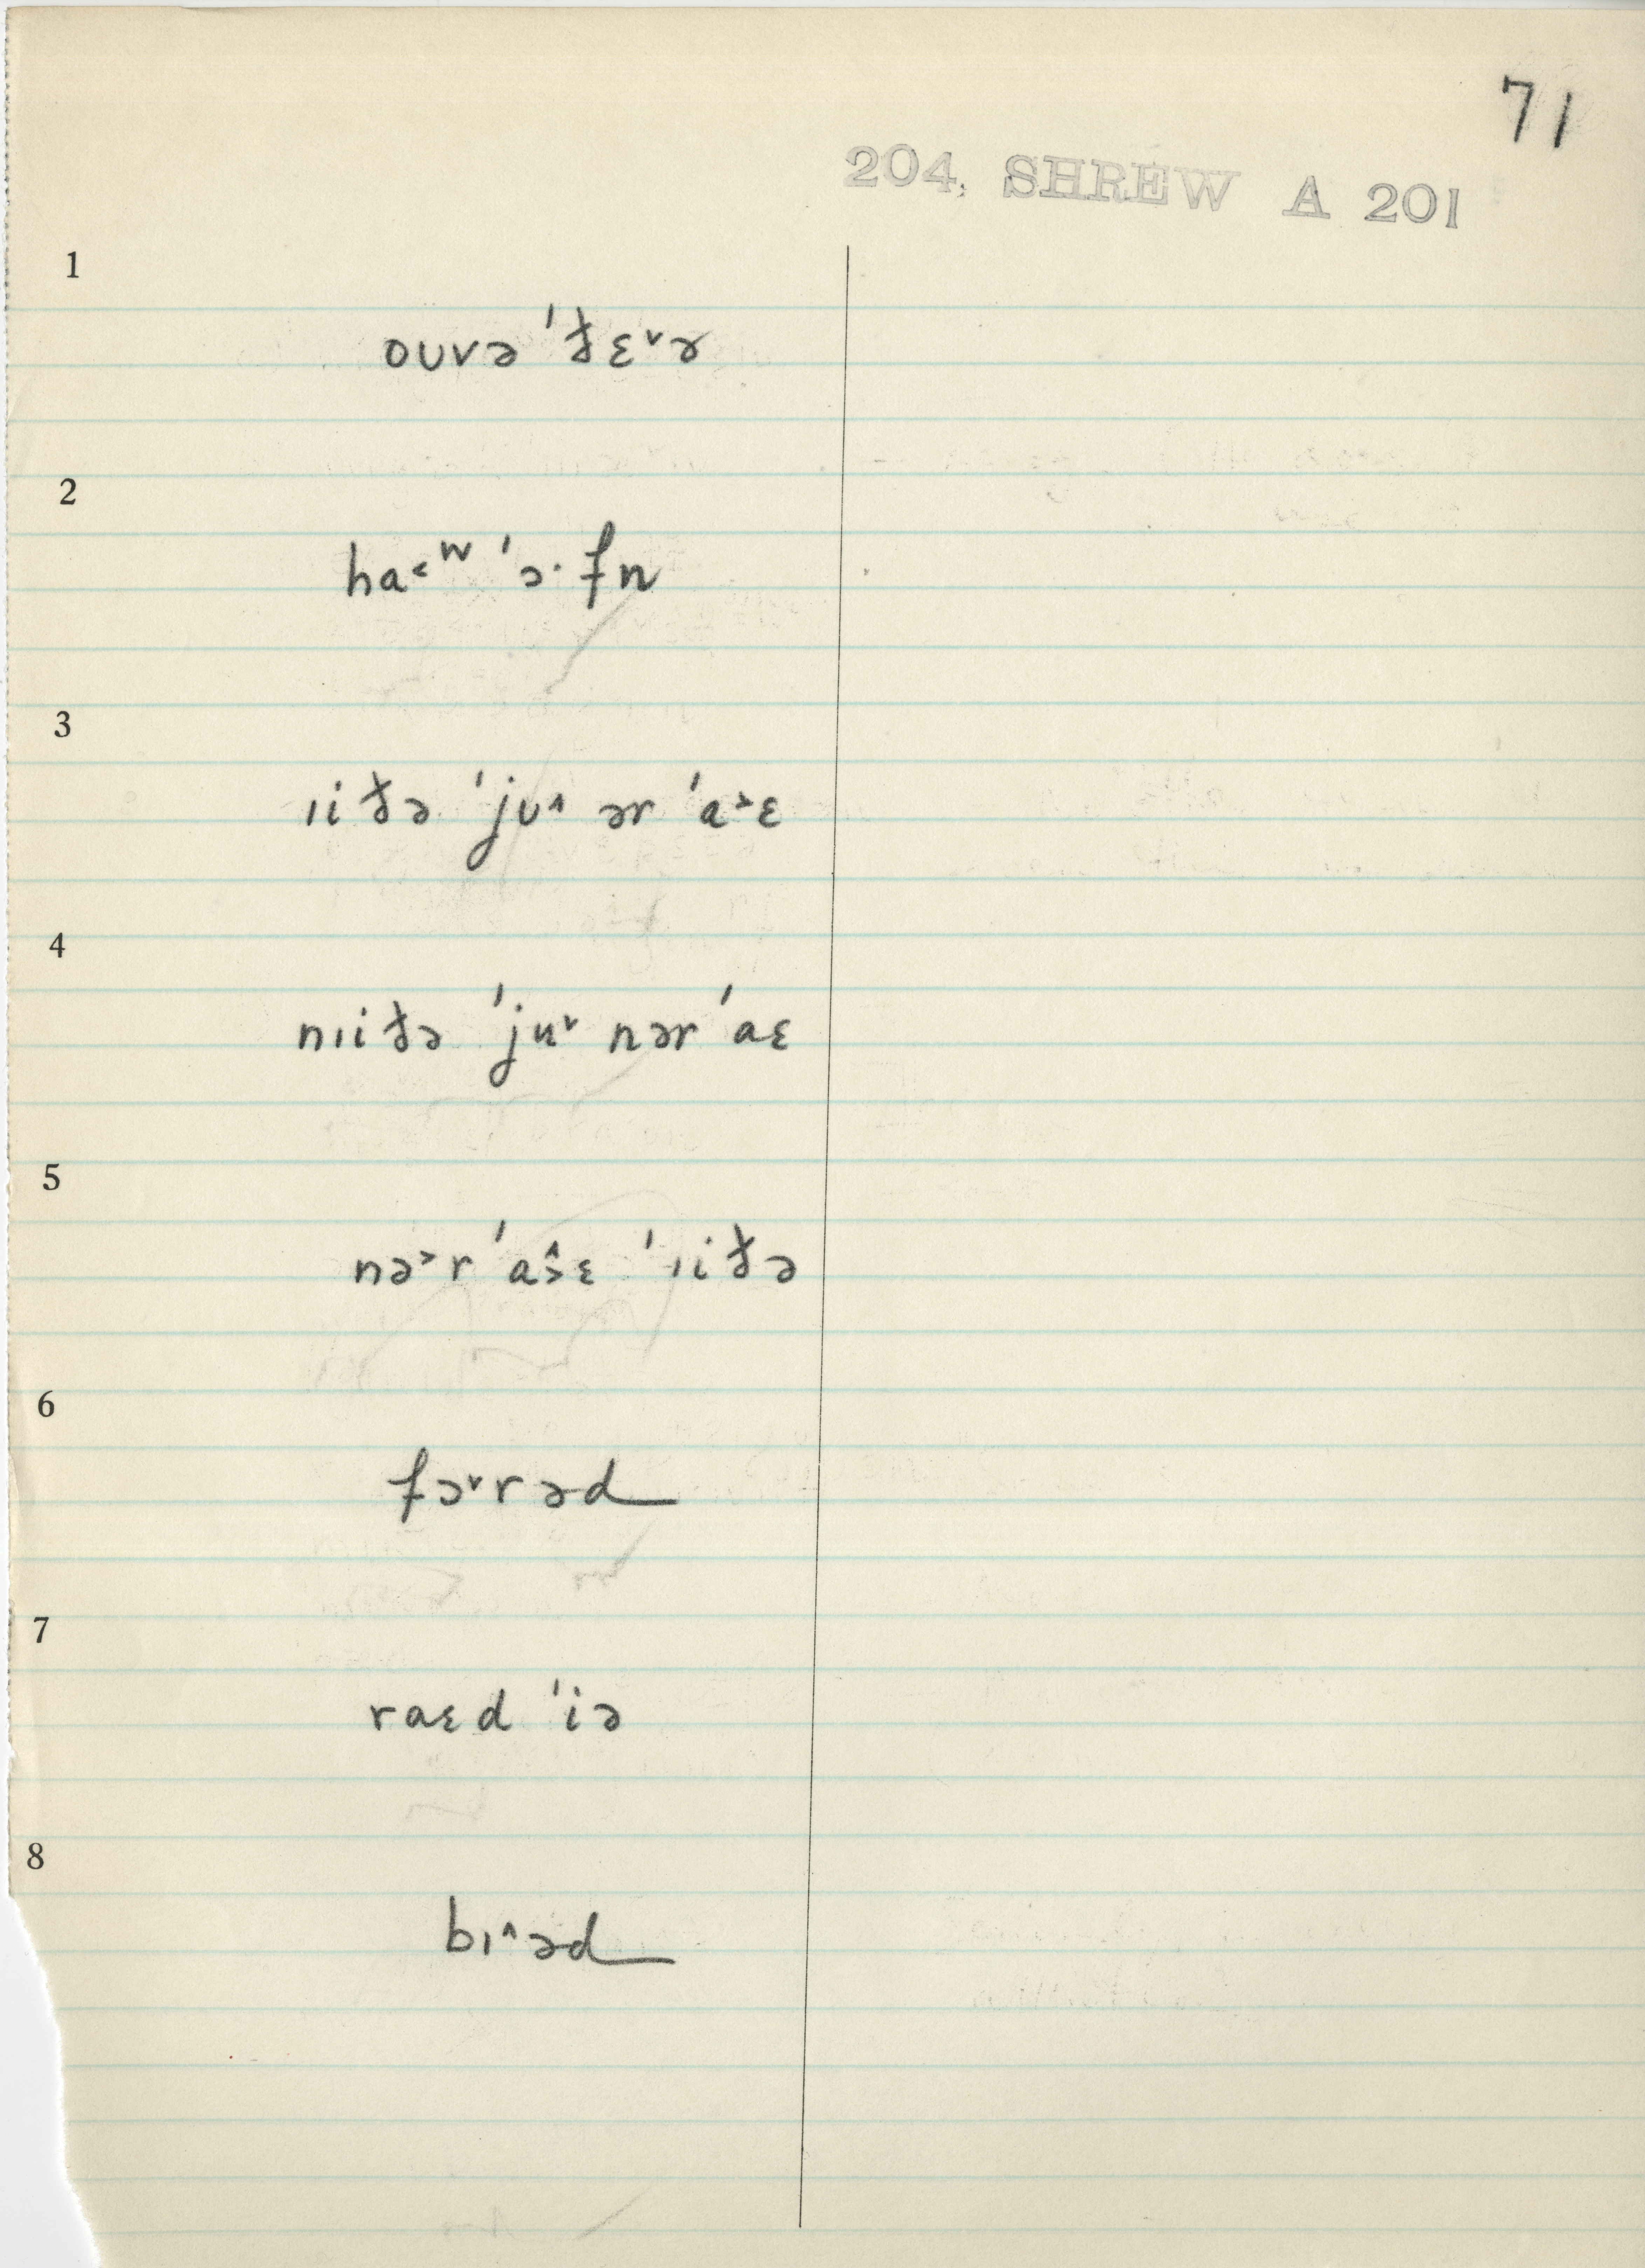 71
204, SHREW A 201
1
oʊvə ˈðɛ˅ɚ
2
ha˂ʷ ˈɔ· fn
3
ɪi ðə ˈjʊ˄ ər ˈa˃ɛ
4
nɪi ðə ˈju˅ nər ˈaɛ
5
nə˃r ˈa˄˃ɛ ˈɪi ðə
6
fɔ˅rəd
7
raɛd ˈiə
8
bɪ˄əd